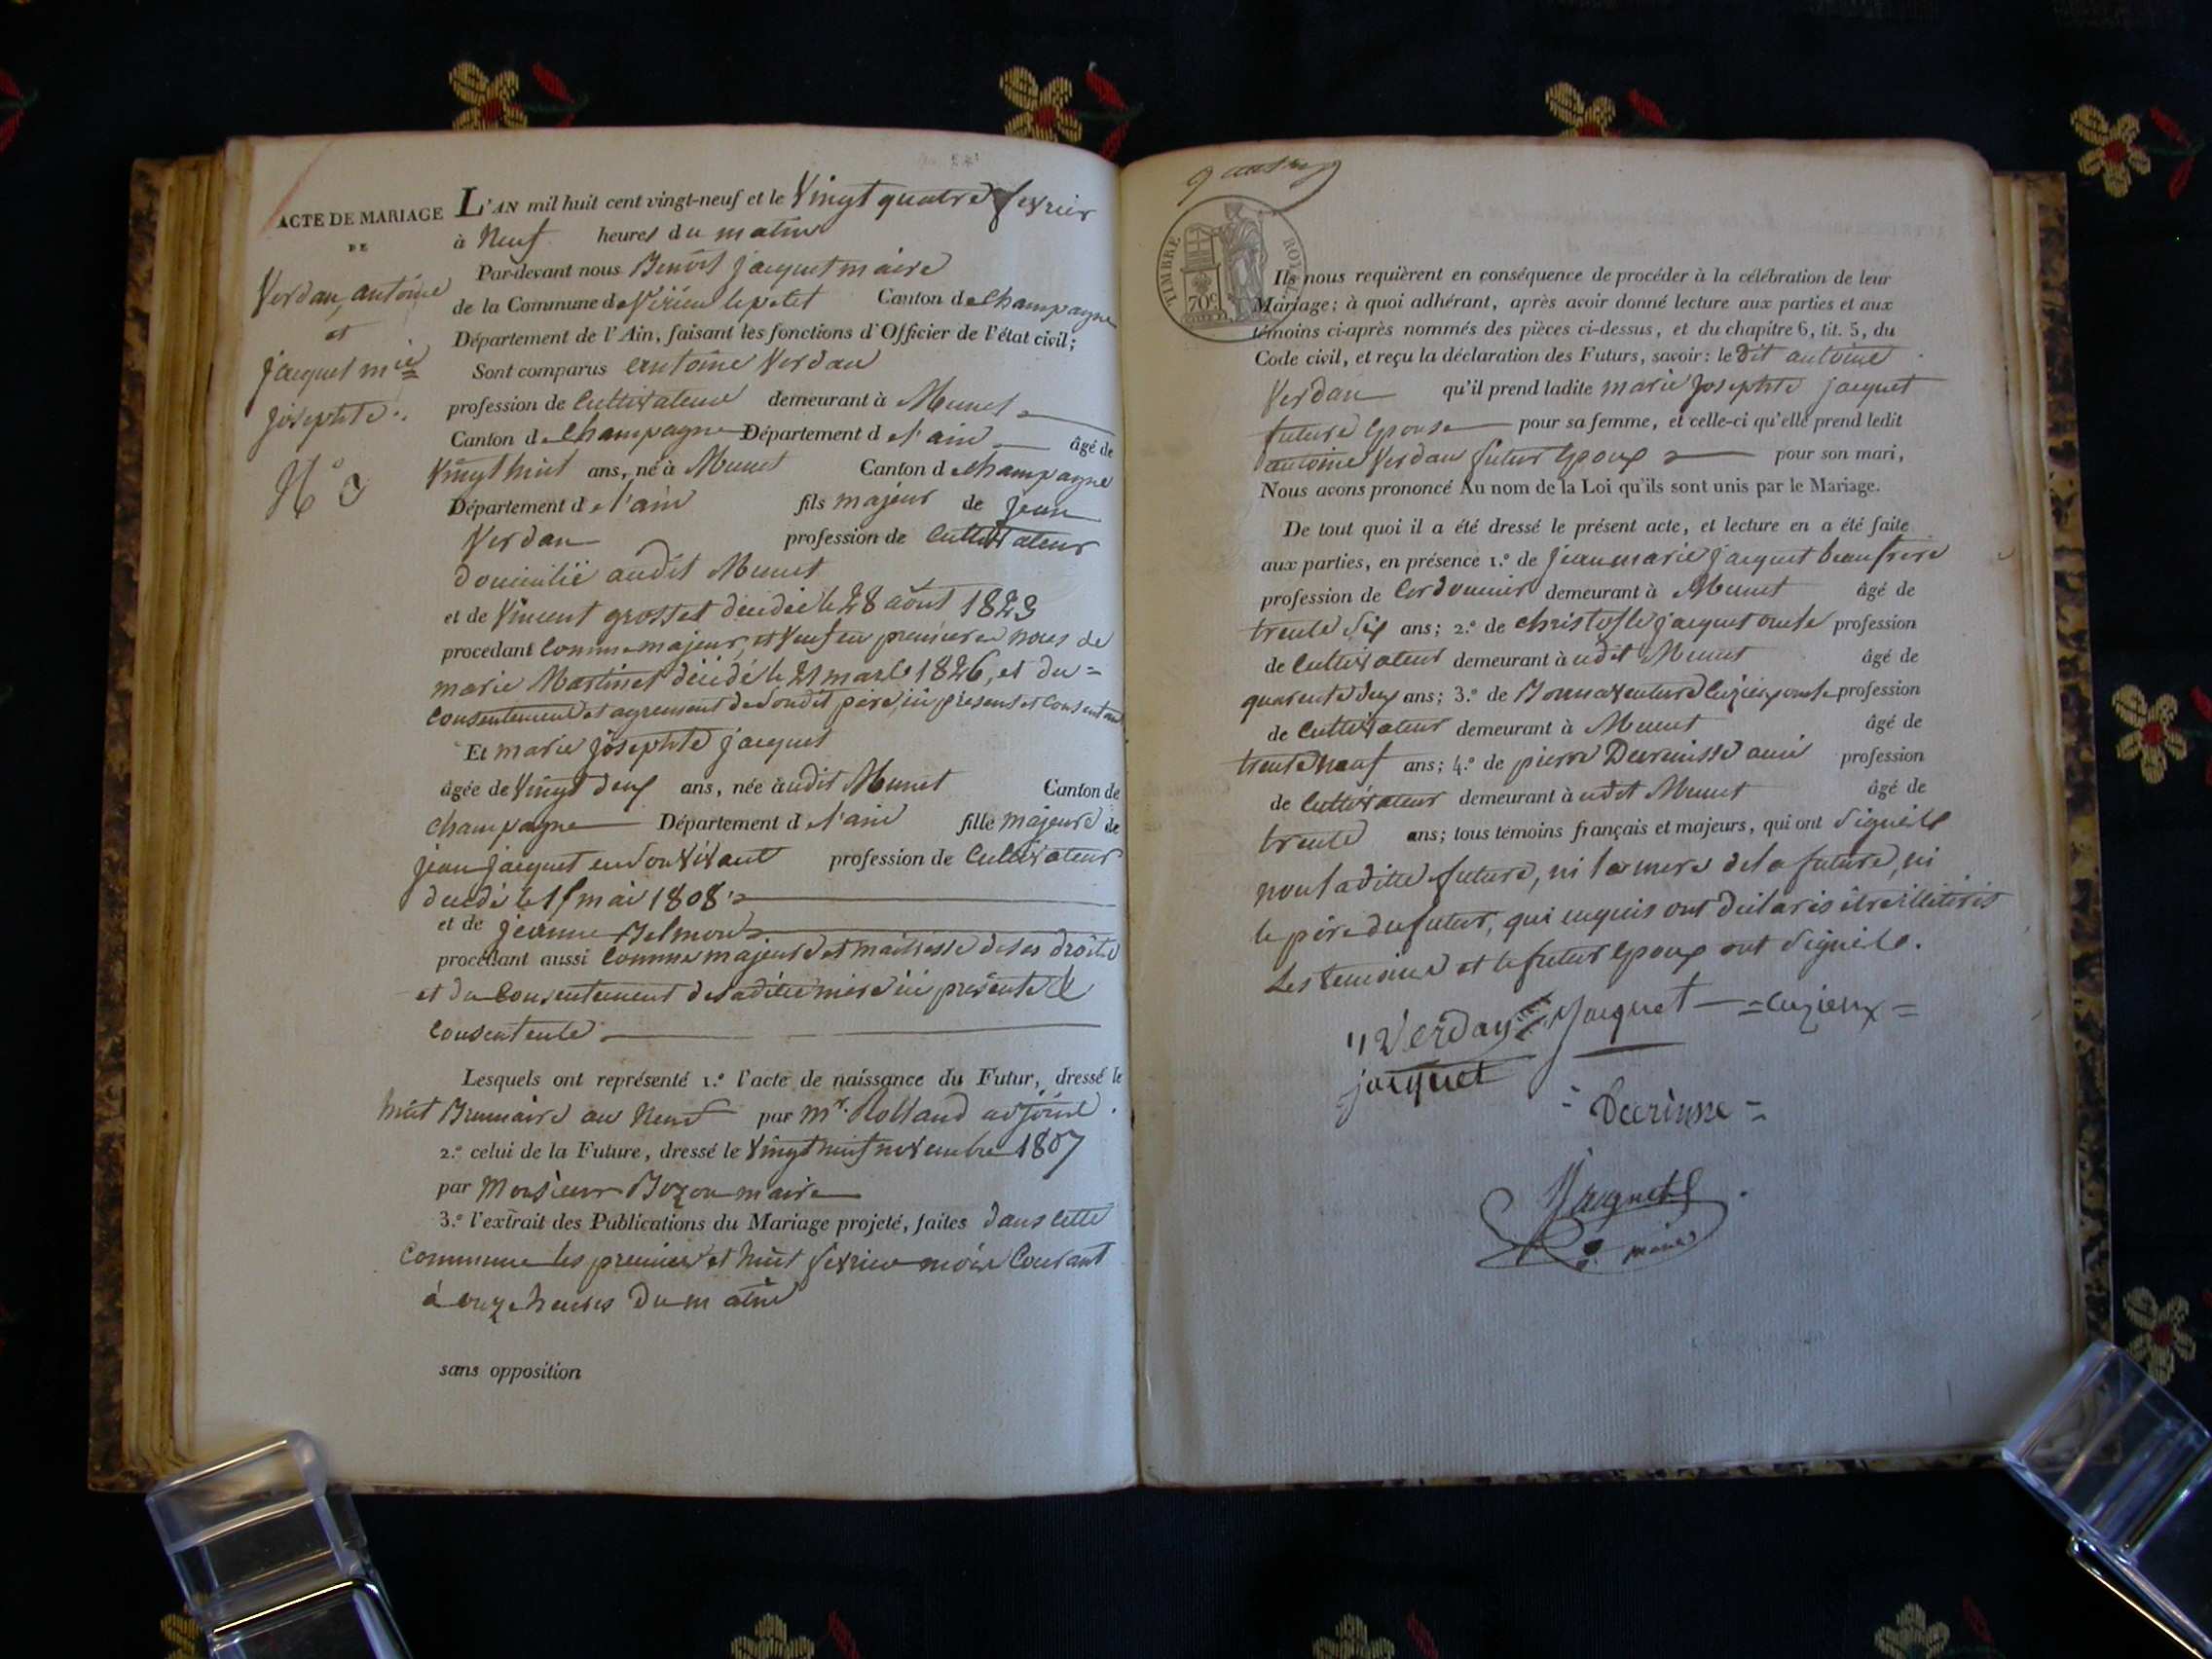 ACTE DE MARIAGE
DE
Verdan, antoine
et
jacquet mie
josephte.
N°
L'AN mil huit cent vingt-neuf et le Vingt quatre fevrier
à Neuf heures du matin
Par-devant nous Benoit jacquet maire
de la Commune de Virieu le petit Canton de Champagne
Département de l'Ain, faisant les fonctions d'Officier de l'état civil;
Sont comparus antoine Verdan
profession de Cultivateur demeurant à Munet
Canton de Champagne Département de l'ain âgé de
Vingt huit ans, né à Munet Canton de Champagne
Département de l'ain fils majeur de Jean
Verdan profession de Cultivateur
domicilié audit Munet
et de Vincent grosset décédée le 28 août 1823
procédant Comme majeur, et Veuf en premiere noces de
marie Martinet décédé le 21 mars 1826, et du =
Consentement et agrement de Sondit père, ici présent et Consentant
Et marie josephte jacquet
âgée de Vingt deux ans, née audit Munet Canton de
Champagne Département de l'ain fille majeure de
jean jacquet en Son Vivant profession de Cultivateur
décédé le mai 1808
et de jeanne Belmont
procédant aussi Comme majeure et maitresse de ses droits
et du Consentement de sadite mère ici présente &
Consentente
Lesquels ont représenté 1.° l'acte de naissance du Futur, dressé le
huit Brumaire an Neuf par mr. Rolland adjoint.
2.° celui de la Future, dressé le Vingt neuf novembre 1807
par Monsieur Bozon maire
3.° l'extrait des Publications du Mariage projeté, faites dans cette
Commune les premier et huit fevrier mois Courant
à onze heures du matin
sans opposition
TIMBRE ROYAL
70c
Ils nous requièrent en conséquence de procéder à la célébration de leur
Mariage; à quoi adhérant, après avoir donné lecture aux parties et aux
témoins ci-après nommés des pièces ci-dessus, et du chapitre 6, tit. 5, du
Code civil, et reçu la déclaration des Futurs, savoir: le dit antoine
Verdan qu'il prend ladite marie josephte jacquet
future Epouse pour sa femme, et celle-ci qu'elle prend ledit
antoine Verdan futur Epoux pour son mari,
Nous avons prononcé Au nom de la Loi qu'ils sont unis par le Mariage.
De tout quoi il a été dressé le présent acte, et lecture en a été faite
aux parties, en présence 1.° de jean marie jacquet beaufrère
profession de Cordonnier demeurant à Munet âgé de
trente Six ans; 2.° de Christofle jacquet oncle profession
de Cultivateur demeurant à udit Munet âgé de
quarente deux ans; 3.° de Bonnaventure Cuzieux oncle profession
de Cultivateur demeurant à Munet âgé de
trente neuf ans; 4.° de pierre Decrinisse ami profession
de Cultivateur demeurant à udit Munet âgé de
trente ans; tous témoins français et majeurs, qui ont Signé &
non laditte future, ni la mere de la future, ni
le père du futur, qui enquis ont déclarés être illitérés
Les temoins et le futur Epoux ont Signés.
Verdan Jacquet = Cuzieux =
jacquet
= Decrinisse =
Jacquet
maire